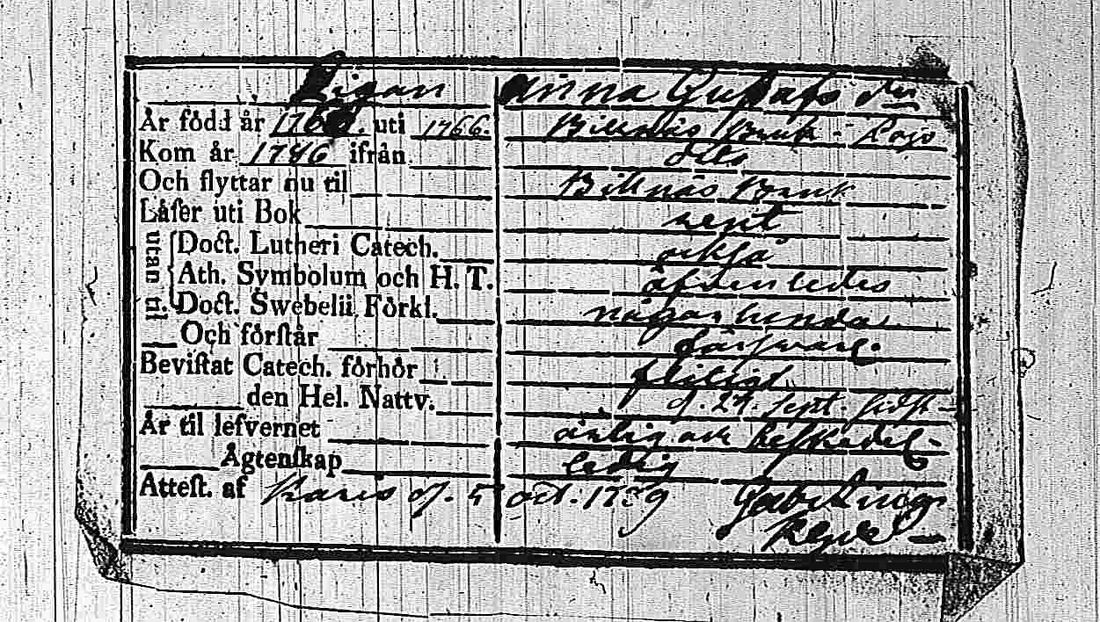 Pigan Anna Gustafs dtr
År född år 176 . uti 1766. Billnäs Bruk - Lojo
Kom år 1786 ifrån dito
Och flyttar nu til Billnäs Bruk
Låſer uti Bok rent
utan til. Doct. Lutheri Catech. också
Ath. Symbolum och H. T. äfvenledes
Doct. Swebelii Förkl. några
Och förſtår förſvarl.
Beviſtat Catech. förhör flitigt
den Hel. Nattv. d. 27. ſept. ſidſt-
År til lefvernet ärlig och beſkedel-
Ågtenſkap ledig
Atteſt. af Karis d. 5 oct. 1789